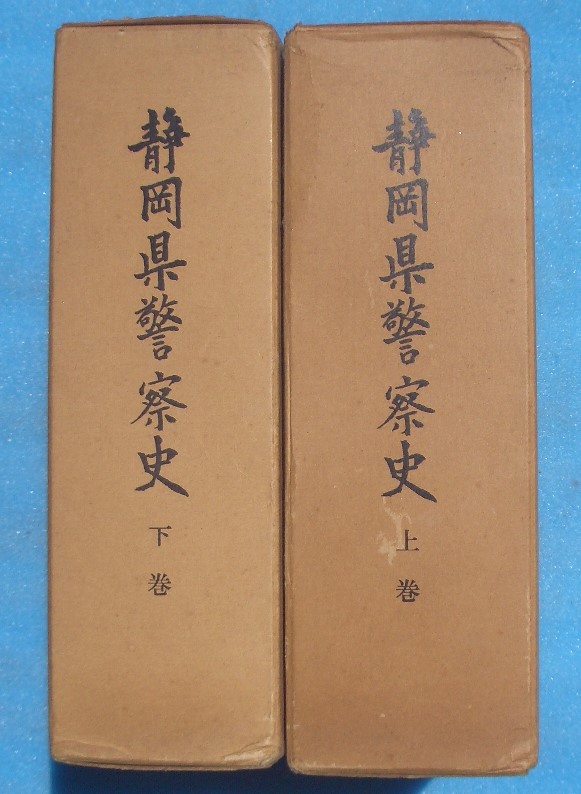 静岡県警察史
上巻
静岡県警察史
下巻